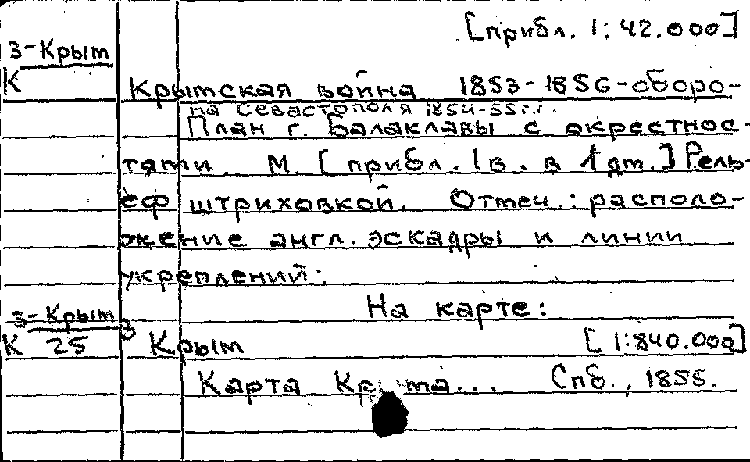 [прибл. 1:42.000]
3-Крым
К
Крымская война 1853-1856-оборо-
на Севастополя 1854-55г.г.
План г. Балаклавы с окрестнос-
тями. М. [прибл. 1в. в 1дт.] Рель-
еф штриховкой. Отмеч.: располо-
жение англ. эскадры и линии
укреплений:
На карте:
3-Крым
К 25
3 Крым [1:840.000]
Карта Крыма... Спб., 1855.